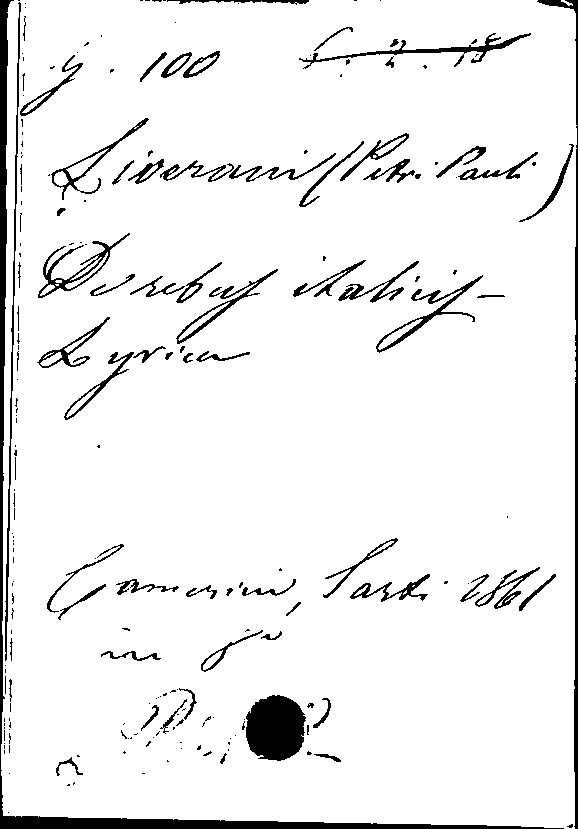 g. 100
Liverani (Petri Pauli)
De rebus italicis -
Lyrica
Camerini, Sarti 1861
in 8º